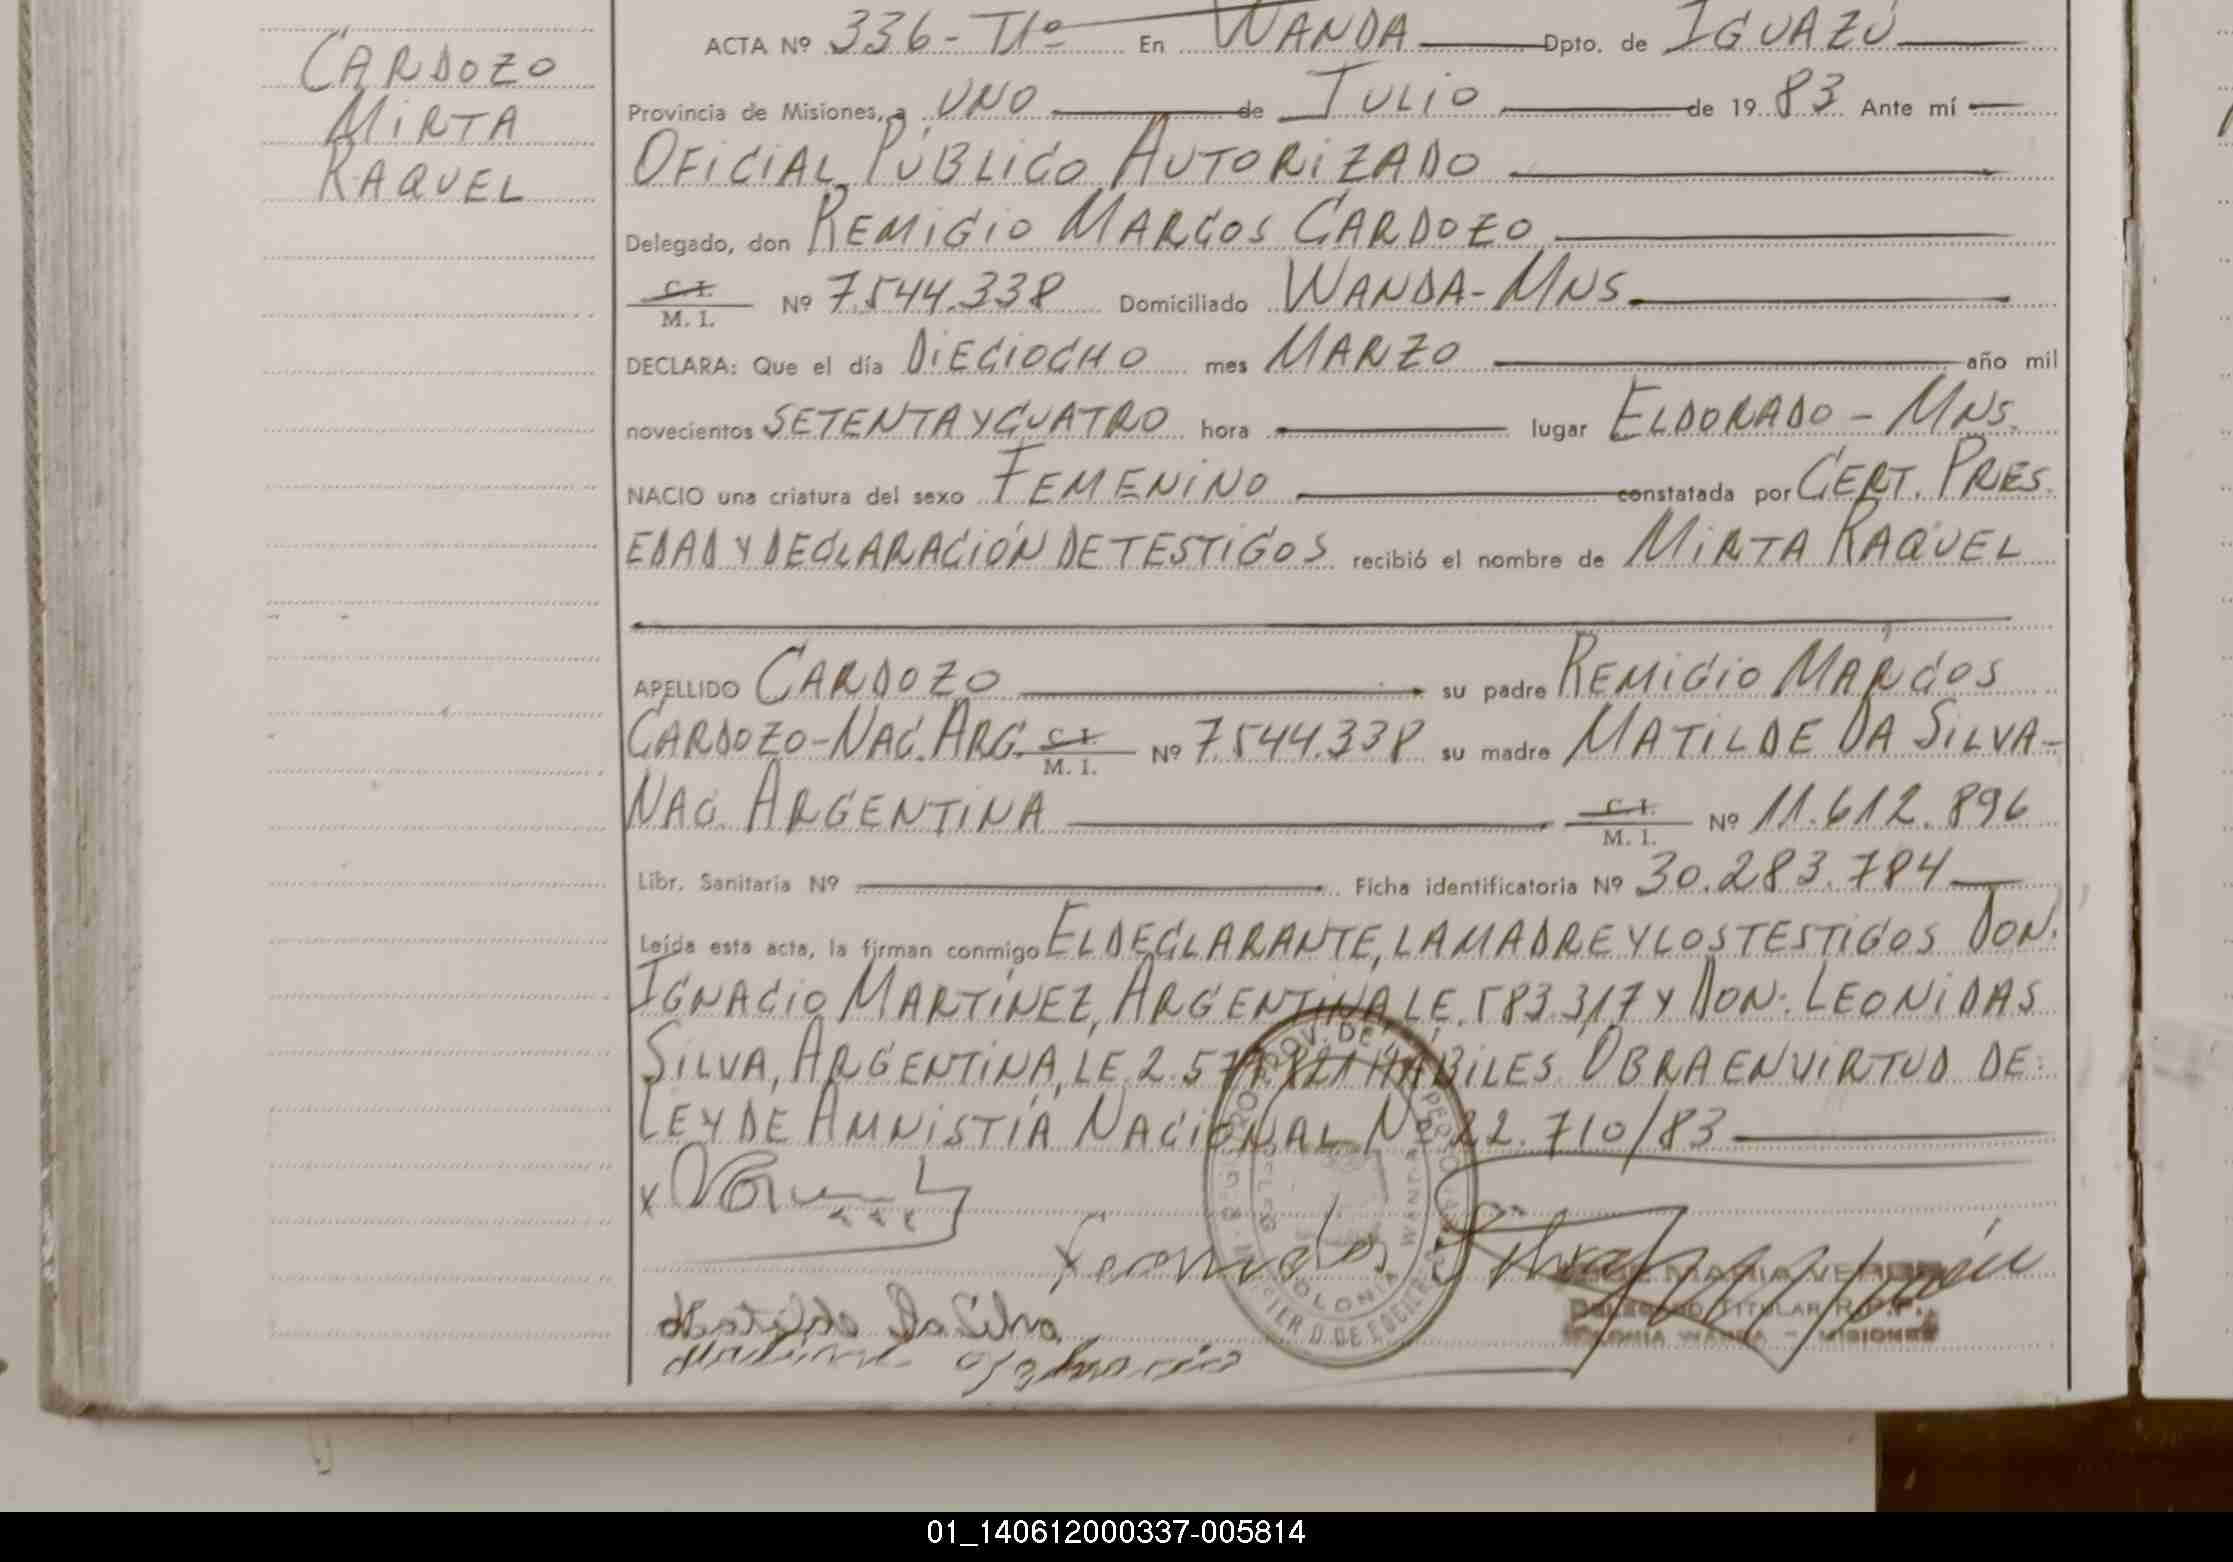 CARDOZO
MIRTA
RAQUEL
ACTA Nº 336-TIº En WANDA Dpto. de IGUAZÚ
Provincia de Misiones, a UNO de JULIO de 1983 Ante mí
OFICIAL PÚBLICO AUTORIZADO
Delegado, don REMIGIO MARCOS CARDOZO
C. I.
M. I. Nº 7.544.338 Domiciliado WANDA-MNS.
DECLARA: Que el día DIECIOCHO mes MARZO año mil
novecientos SETENTA Y CUATRO hora lugar ELDORADO - MNS.
NACIO una criatura del sexo FEMENINO constatada por CERT. PRES.
EDAD Y DECLARACIÓN DE TESTIGOS recibió el nombre de MIRTA RAQUEL
APELLIDO CARDOZO su padre REMIGIO MARCOS
CARDOZO-NAC. ARG. C. I. M. I. Nº 7.544.338 su madre MATILDE DA SILVA-
NAC. ARGENTINA C. I. M. I. Nº 11.612.896
Libr. Sanitaria Nº Ficha identificatoria Nº 30.283.784
Leída esta acta, la firman conmigo EL DECLARANTE, LA MADRE Y LOS TESTIGOS DON:
IGNACIO MARTÍNEZ, ARGENTINA, L.E. 583.317 Y DON: LEONIDAS
SILVA, ARGENTINA, L.E. 2.57 HÁBILES. OBRA EN VIRTUD DE:
LEY DE AMNISTÍA NACIONAL Nº 22.710/83
PROV. DE
COLONIA WANDA
Leonidas Silva
JOSE MARIA VERDE
DELEGADO TITULAR R.P.P.
COLONIA WANDA - MISIONES
Matilde Da Silva
01_140612000337-005814